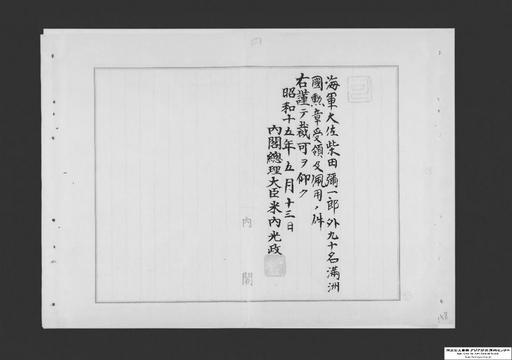 海軍大佐柴田彌一郎外九十名滿洲
國勲章受領及佩用ノ件
右謹テ裁可ヲ仰ク
昭和十五年五月十三日
內閣總理大臣米內光政
內閣